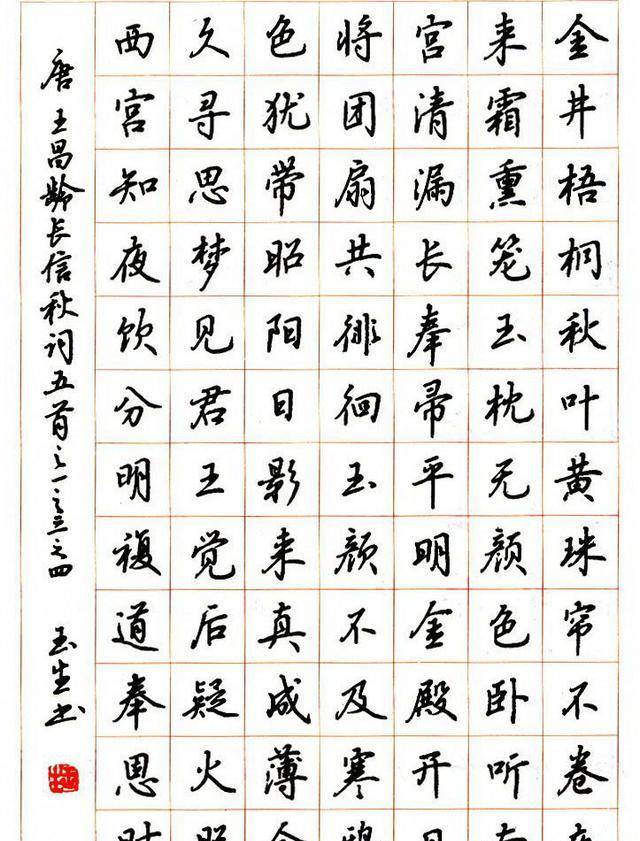 金井梧桐秋叶黄珠帘不卷
来霜熏笼玉枕无颜色卧听
宫清漏长奉帚平明金殿开
将团扇共徘徊玉颜不及寒
色犹带昭阳日影来真成薄
久寻思梦见君王觉后疑火
西宫知夜饮分明複道奉恩
唐 王昌龄长信秋词五首之一之三之四 玉生书